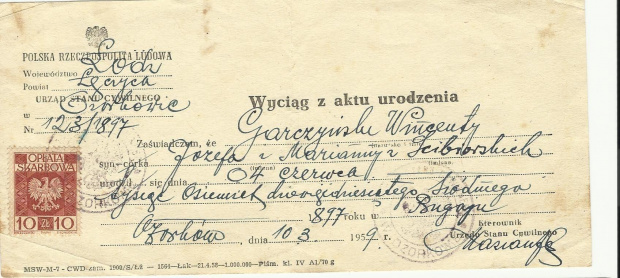 POLSKA RZECZPOSPOLITA LUDOWA
Województwo Łódź
Powiat Łęczyca
URZĄD STANU CYWILNEGO
w Ozorkowie
Nr. 123/1897
Wyciąg z aktu urodzenia
Zaświadczam, że Garczyński Wincenty
syn-córka Józefa i Marianny z Ścibiorskich
urodził się dnia 04 czerwca
tysiąc osiemset dziewięćdziesiątego siódmego
1897 roku w Bugaju
Ozorków dnia 10 3 1959 r.
Kierownik
Urzędu Stanu Cywilnego
OPŁATA
SKARBOWA
10 ZŁ 10
MSW-M-7